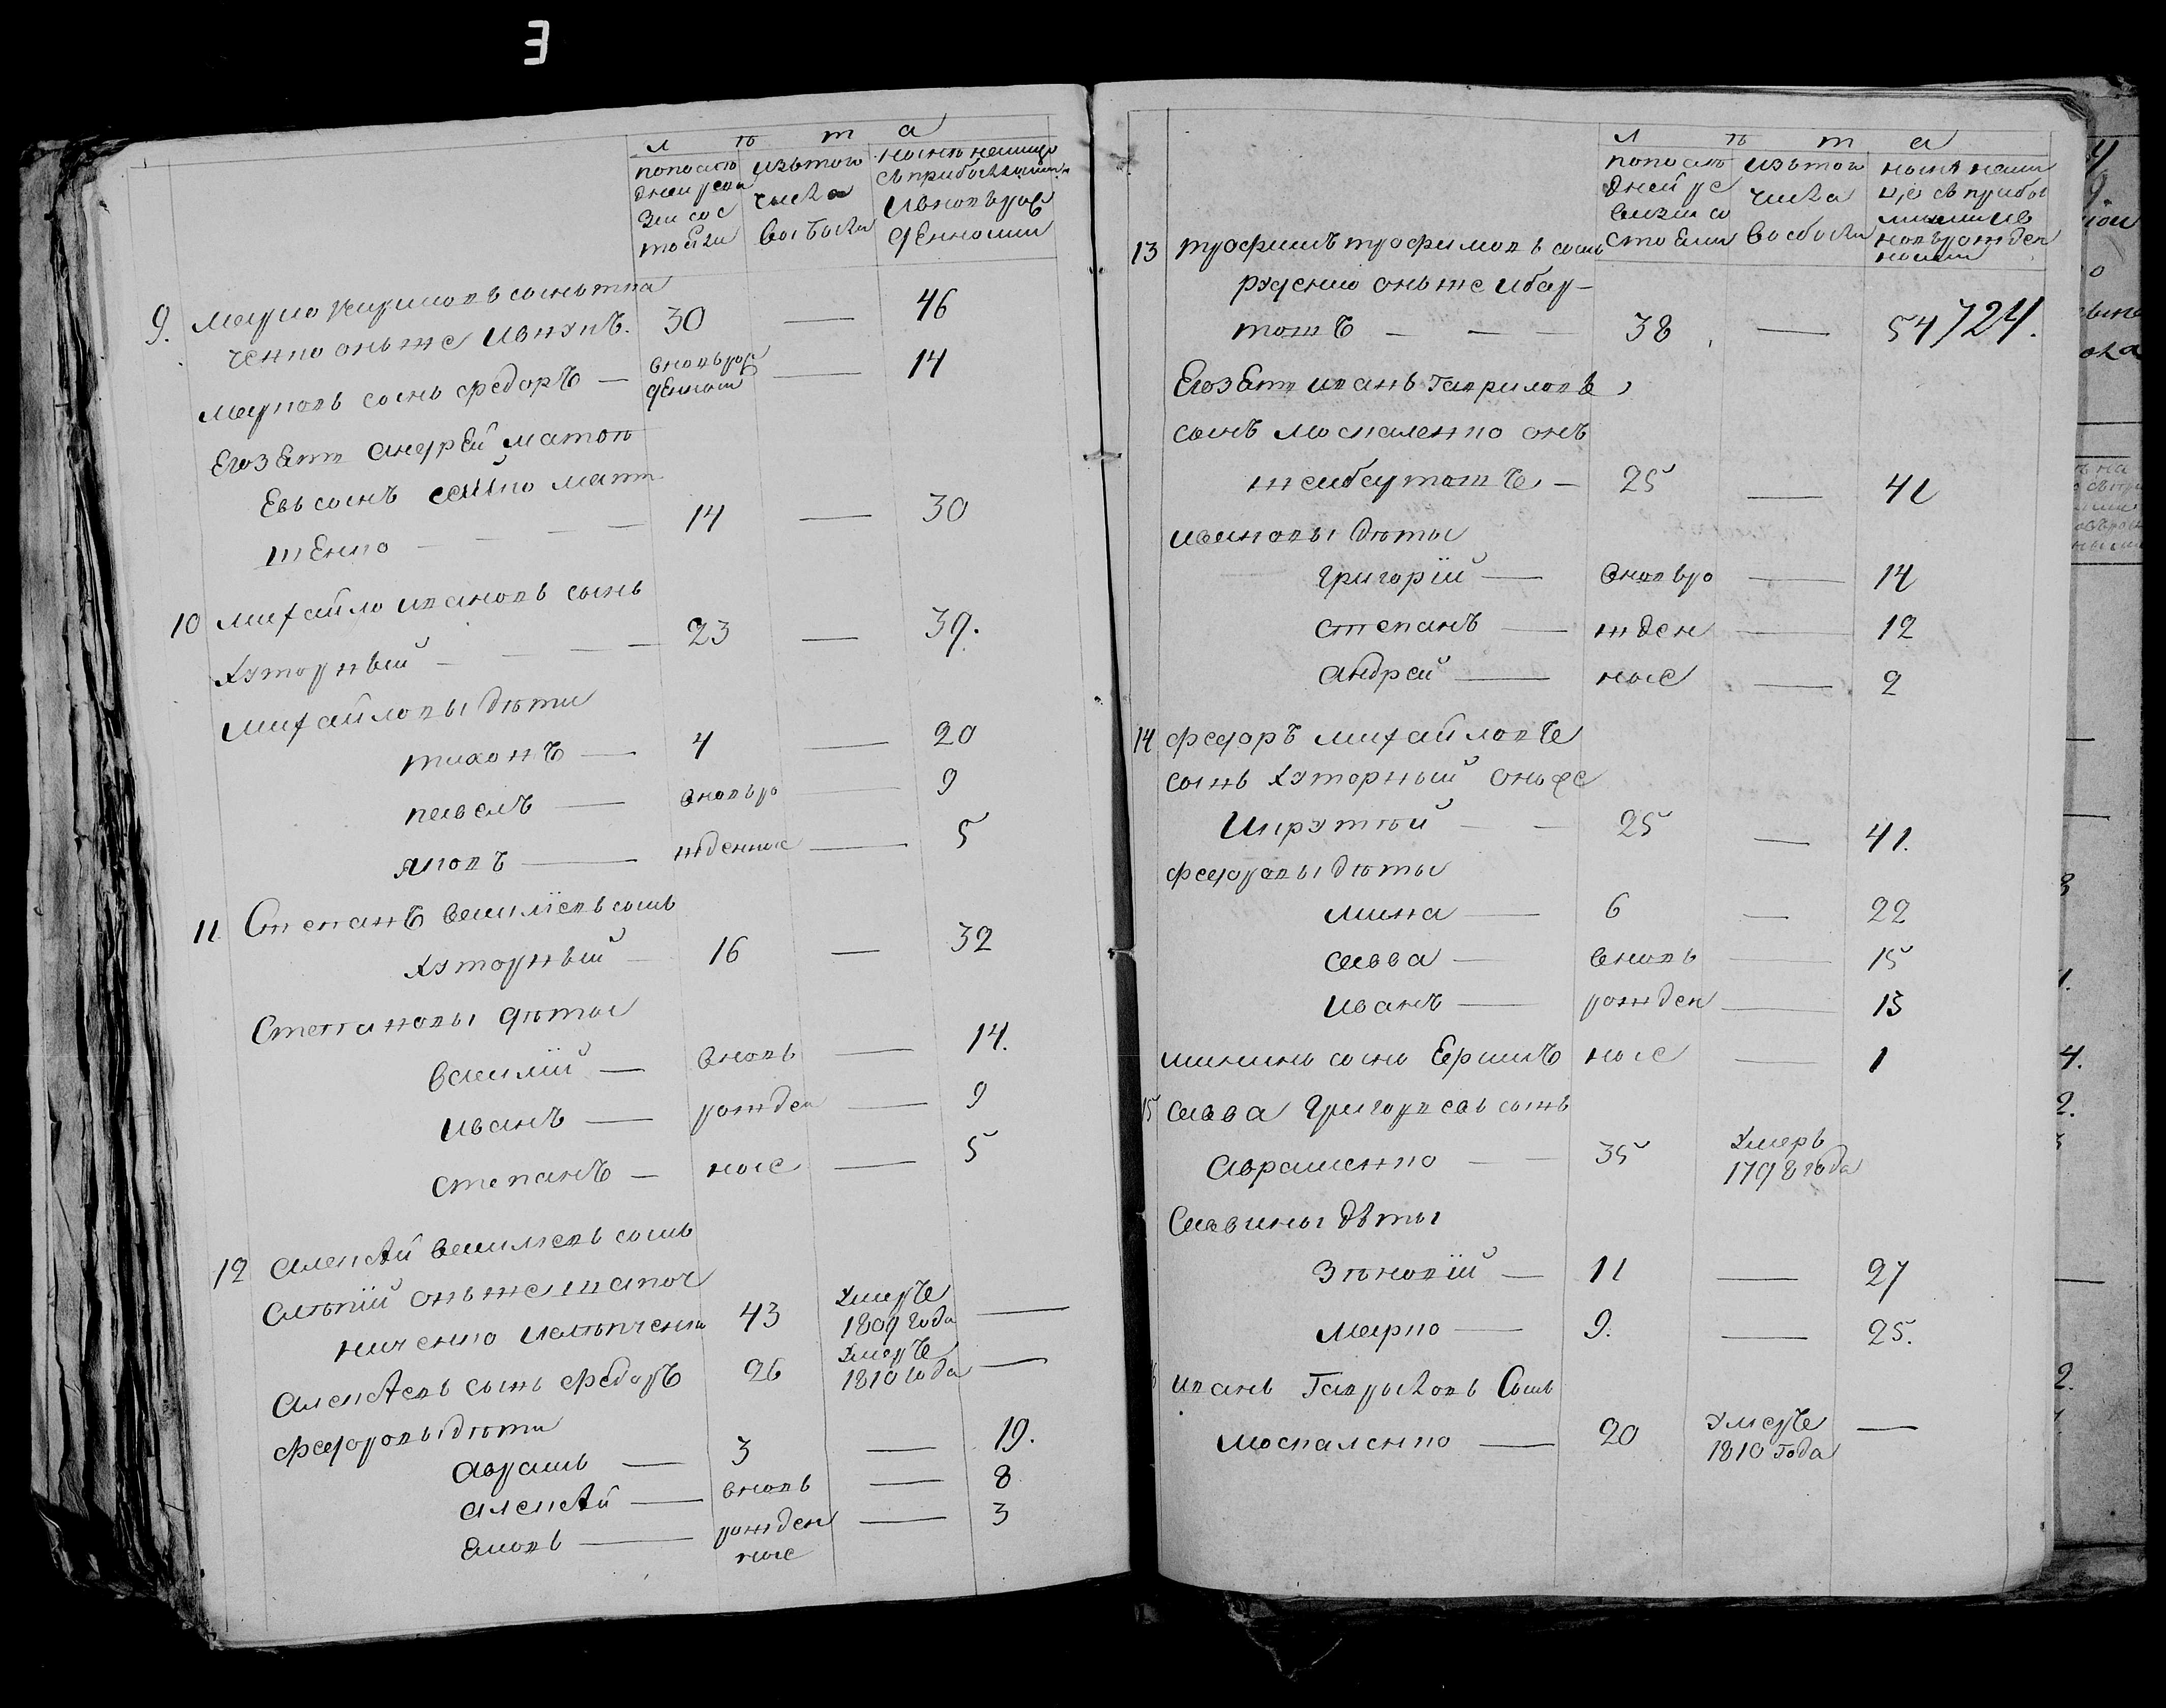 Л ѣ т а
попослѣ
дней реви
зіи сос
тояли
изътого
числа
выбыли
нынѣ налицо
съприбылыми
ивновьрож
денными
9. Марко Кириловъ сынъ тка
ченко онъже Ивкунъ. 30 — 46
Марковъ сынъ Федоръ — вновьрож
денный — 14
Егозять Андрей Матвѣ
евъ сынъ
шенко — 14 — 30
10 Михайло Ивановъ сынъ
Хуторный — 23 — 39.
Михайловы дѣти
Тихонъ — 4 — 20
Павелъ — вновьро — 9
Яковъ — жденные — 5
11 Степанъ Васильевъ сынъ
Хуторный — 16 — 32
Степановы дѣти
Василій — вновь — 14.
Иванъ — рожден — 9
Степанъ — ные — 5
12 Алексѣй Васильевъ сынъ
Слѣпій онъже шапоч
ниченко 43 Умеръ
1809 года —
Алексѣевъ сынъ Федоръ 26 Умеръ
1810 года —
Федоровы дѣти
Аврамъ — 3 — 19.
Алексѣй — вновь — 8
Яковъ — рожден — 3
ные
Л ѣ т а
попослѣ
дней ре
визіи со
стояли
изътого
числа
выбыли
нынѣ нали
цо съ прибы
лыми ив
новьрожден
ными
13 Трофимъ Трофимовъ сынъ
Руденко онъже Ибар
тошъ — — — 38 — 54 / 724.
Егозять Иванъ Гавриловъ
сынъ Москаленко онъ
жеибартошъ — 25 — 41
Ивановы дѣти
Григорій — вновьро — 14
Степанъ — жден — 12
Андрей — ные — 2
14 Федоръ Михайловъ
сынъ Хуторный онъже
Икрутій — — 25 — 41.
Федоровы дѣти
Мина — 6 — 22
Савва — вновь — 15
Иванъ — рожден — 13
Мининъ сынъ Ефимъ ные — 1
15 Савва Григорьевъ сынъ
Авраменко — 35 Умеръ
1798 года
Савины дѣти
Зѣновій — 11 — 27
Марко — 9. — 25.
Иванъ Гавриловъ Сынъ
Москаленко — 20 Умеръ
1810 года —